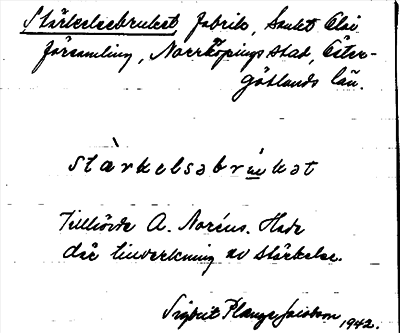 Stärkelsebruket, fabrik, Sankt Olai
församling, Norrköpings stad, Öster-
götlands län.
stàrkelsəbrúkət
Tillhörde A. Noréns. Hade
där tillverkning av stärkelse.
Sigbrit Plange Jacobson 1942.